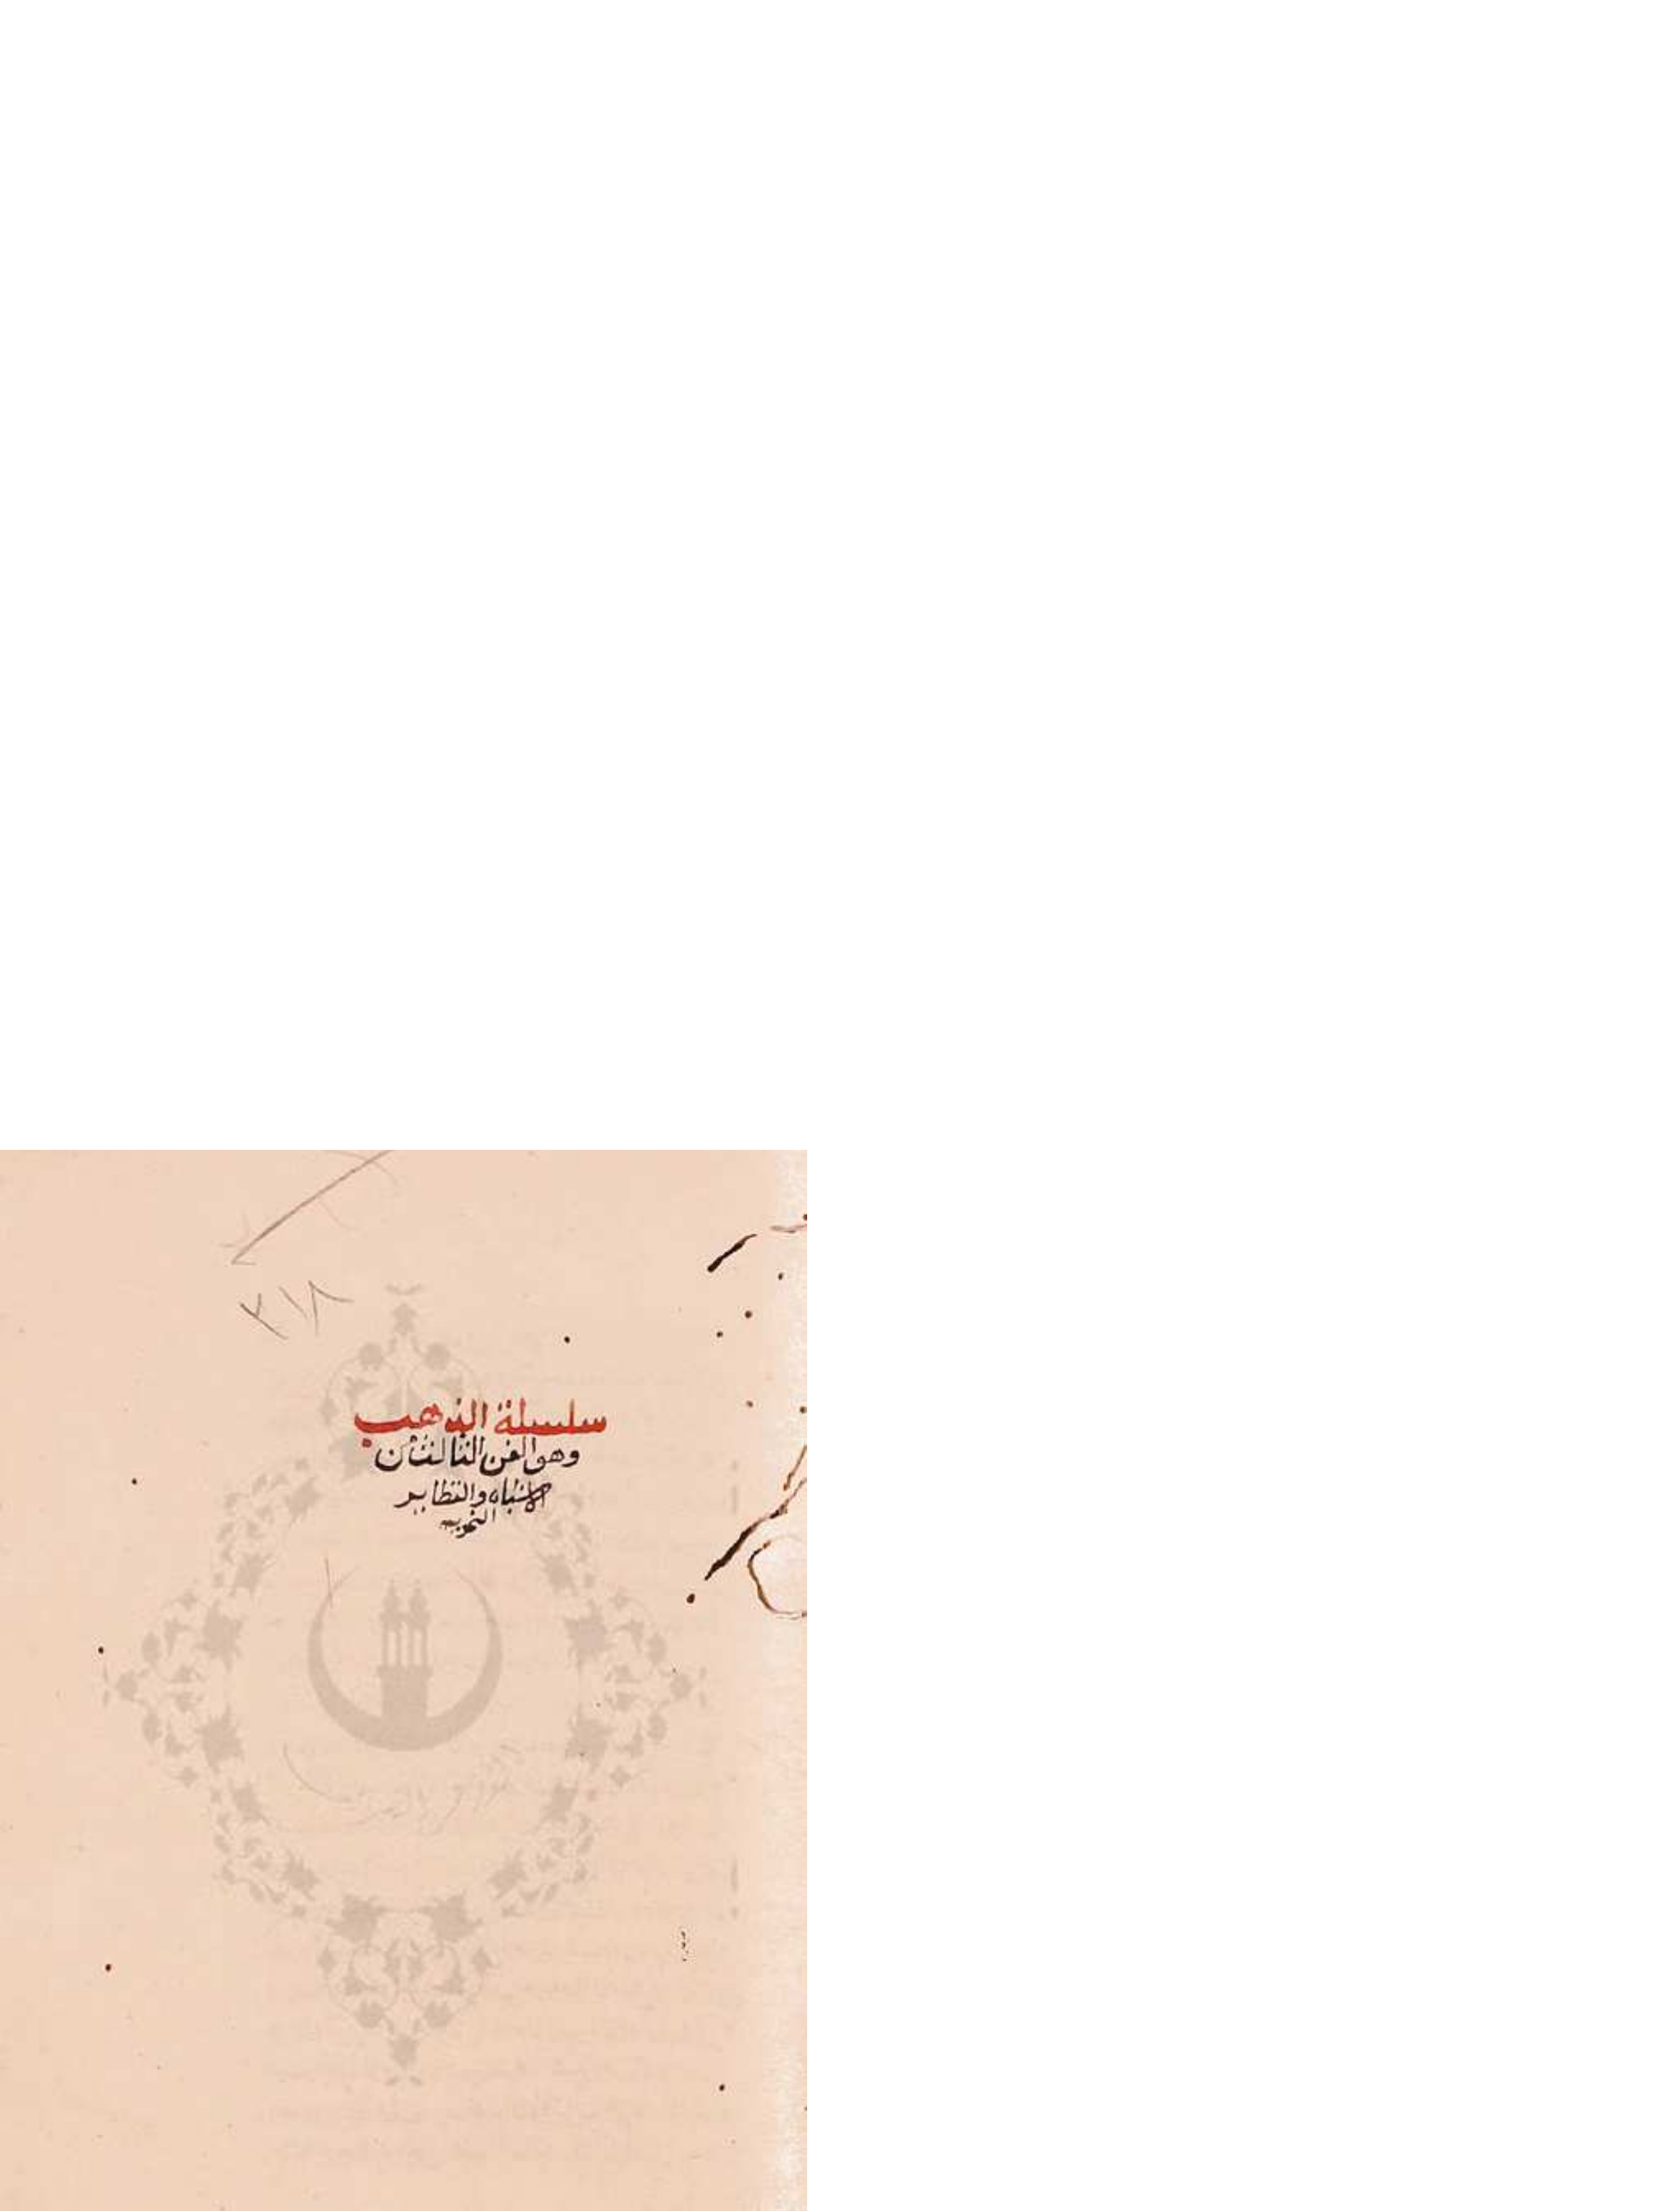 ٢١٨
سلسلة الذهب
وهو الفن الثالث من
الاشباه والنظاير
النحويه